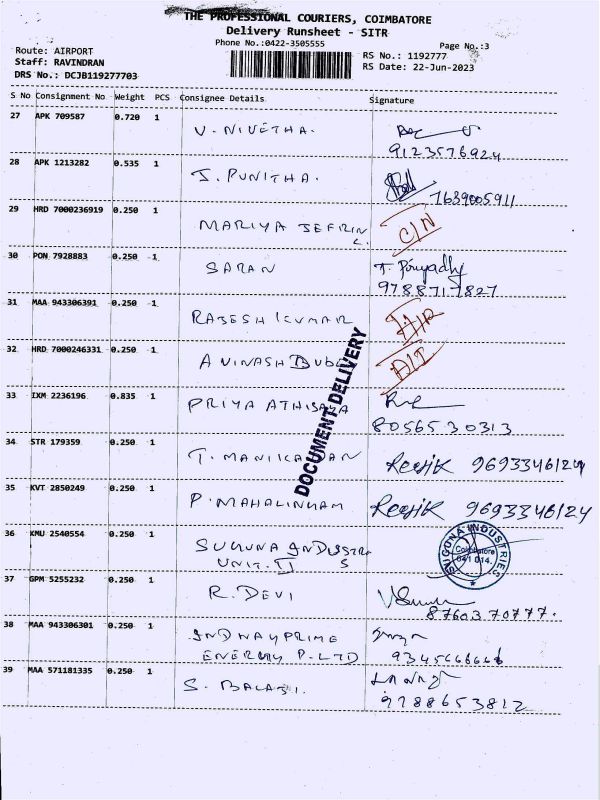 THE PROFESSIONAL COURIERS, COIMBATORE
Delivery Runsheet - SITR
Phone No.:0422-3505555
Page No.:3
Route: AIRPORT
RS No.: 1192777
Staff: RAVINDRAN
RS Date: 22-Jun-2023
DRS No.: DCJB119277703
S No Consignment No Weight PCS Consignee Details Signature
27 APK 709587 0.720 1 V. NIVETHA.
9123576924
28 APK 1213282 0.535 1 J. PUNITHA.
7639005911
29 HRD 7000236919 0.250 1 MARIYA JEFRIN L. C/N
30 PON 7928883 0.250 1 SARAN
9788717827
31 MAA 943306391 0.250 1 RAJESH KUMAR
32 HRD 7000246331 0.250 1 AVINASH
DOCUMENT DELIVERY
33 IXM 2236196 0.835 1 PRIYA
8056530313
34 STR 179359 0.250 1 T. 9693346124
35 KVT 2850249 0.250 1 P. MAHALINHAM 9693346124
36 KMU 2540554 0.250 1 SUGUNA INDUSTRIES
UNIT. II
SUGUNA INDUSTRIES
Coimbatore
641 014.
37 GPM 5255232 0.250 1 R. DEVI
8760370777.
38 MAA 943306301 0.250 1 INDWAYPRIME
ENERGY P. LTD
39 MAA 571181335 0.250 1 S. BALAJI.
9788653812